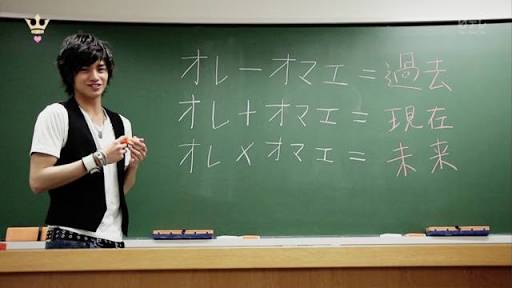 オレ－オマエ＝過去
オレ＋オマエ＝現在
オレ×オマエ＝未来